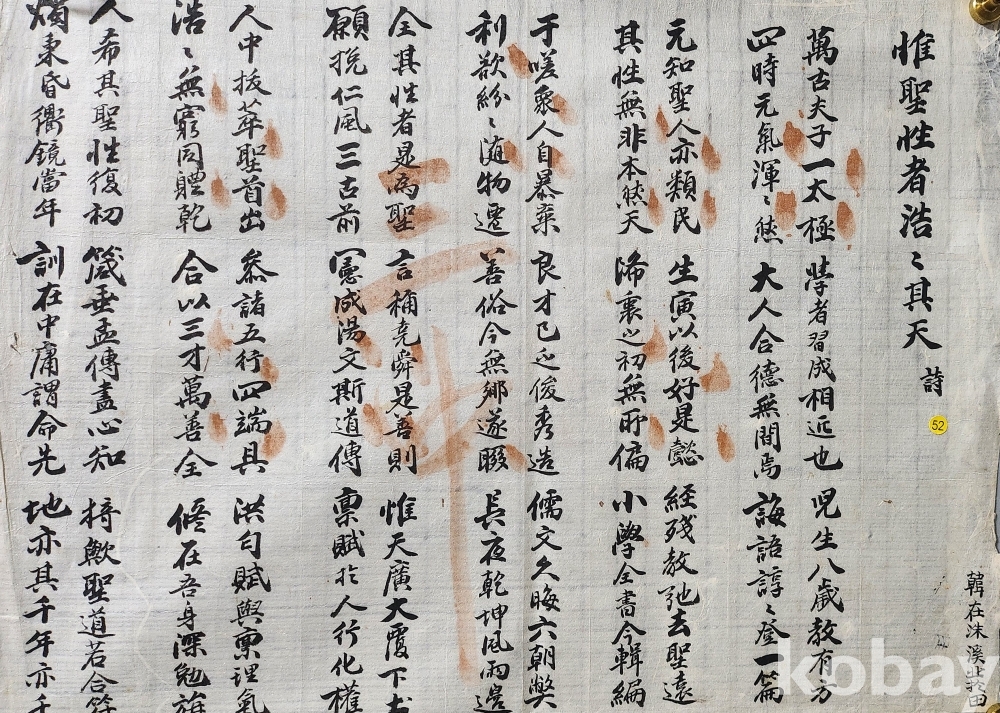 惟聖性者浩〻其天 詩
52
萬古夫子一太極 學者習成相近也 児生八歲教有方
四時元氣渾〻然 大人合德無間焉 誨語諄〻登一篇
元知聖人亦類民 生寅以後好是懿 經殘教弛去聖遠
其性無非本然天 降衷之初無所偏 小學全書今輯編
于嗟衆人自暴棄 良才已之俊秀造 儒文久晦六朝獘
利欲紛〻隨物遷 善俗今無鄉遂暇 長夜乾坤風雨邊
全其性者是為聖 言稱堯舜是善則 惟天廣大覆下
願挽仁風三古前 憲成湯文斯道傳 稟賦於人行化權
人中拔萃聖首出 參諸五行四端具 洪匀賦與稟理氣
浩〻無窮同體乾 合以三才萬善全 修在吾身深勉
人希其聖性復初 箴垂孟傳盡心知 猗歟聖道若合符
燭束昏衢鏡當年 訓在中庸謂命先 地亦其千年亦千
韓在洙 溪
kobay